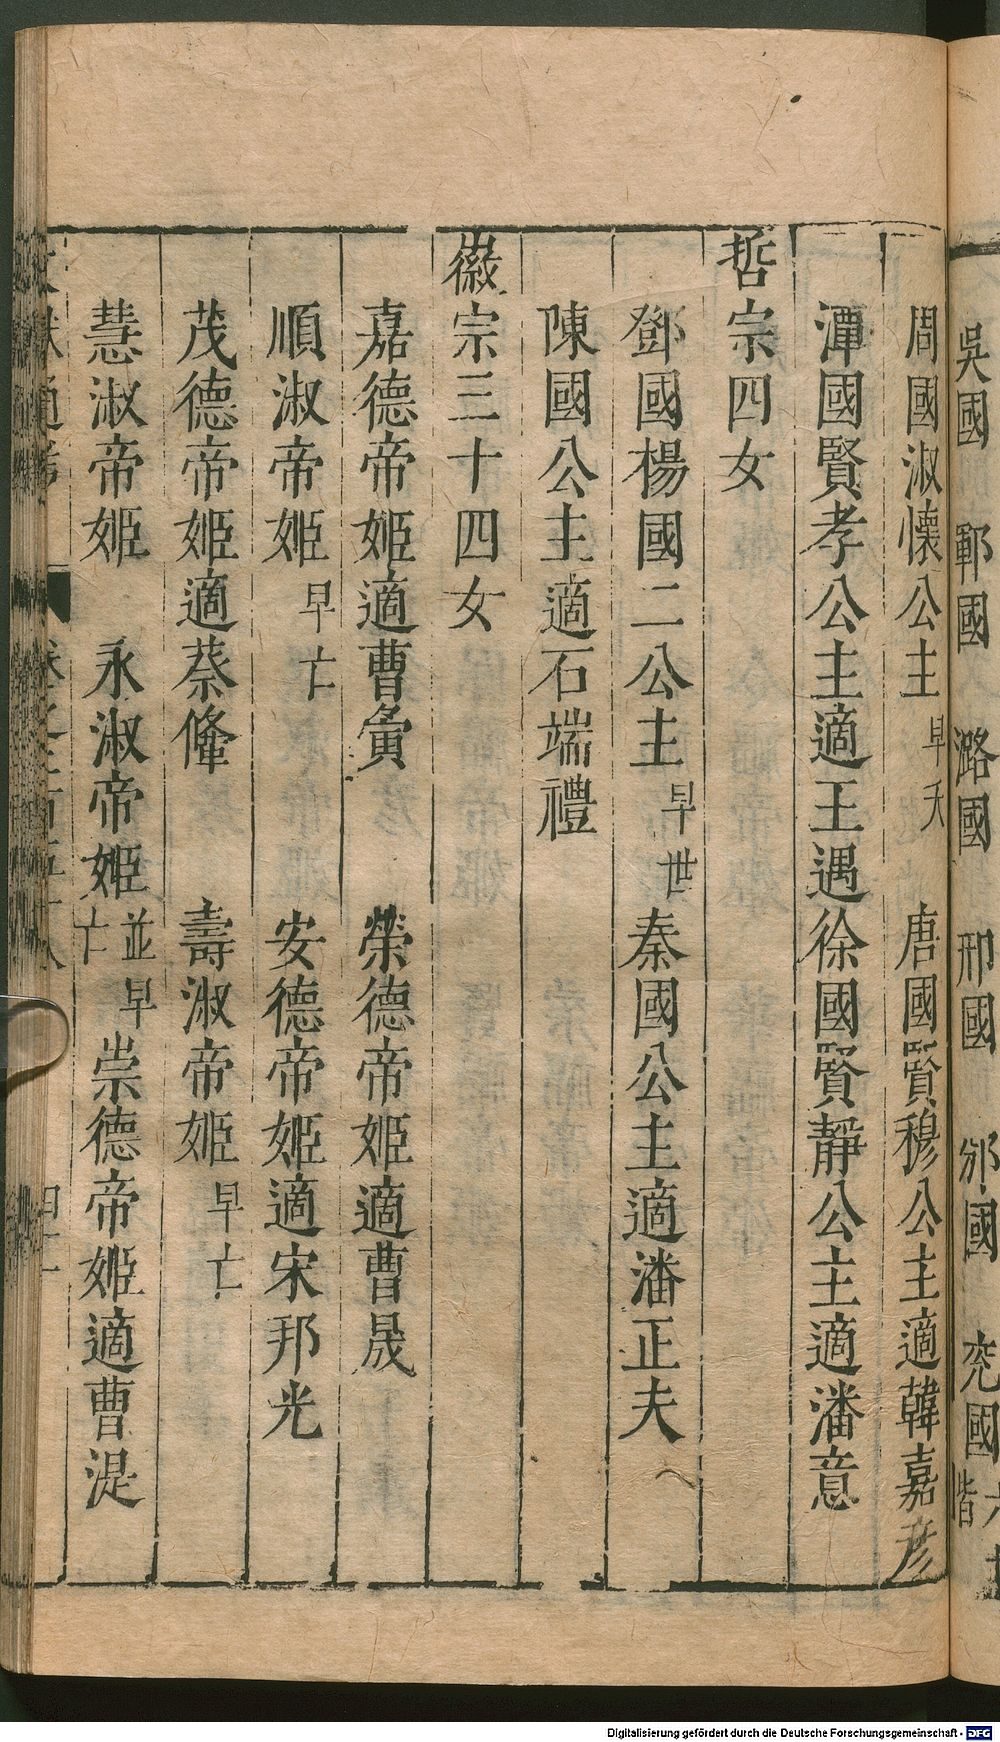 吳國 鄆國 潞國 邢國 邠國 兖國
周國淑懷公主早夭 唐國賢穆公主適韓嘉彥
潭國賢孝公主適王遇徐國賢靜公主適潘意
哲宗四女
鄧國楊國二公主早世秦國公主適潘正夫
陳國公主適石端禮
徽宗三十四女
嘉德帝姬適曹夤 榮德帝姬適曹晟
順淑帝姬早亡 安德帝姬適宋邦光
茂德帝姬適蔡鞗 壽淑帝姬早亡
慧淑帝姬 永淑帝姬並早亡崇德帝姬適曹湜
Digitalisierung gefördert durch die Deutsche Forschungsgemeinschaft - DFG